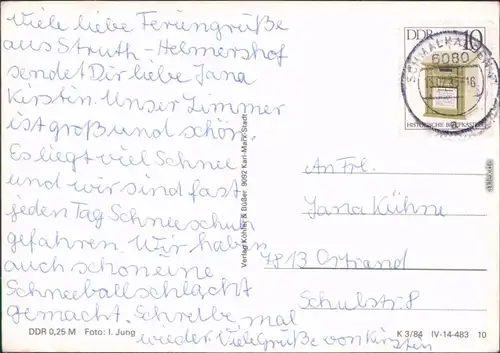 Viele liebe Feriengrüße
aus Struth-Helmershof
sendet Dir liebe Jana
Kirstin. Unser Zimmer
ist groß und schön.
Es liegt viel Schnee
und wir sind fast
jeden Tag Schneeschuh
gefahren. Wir haben
auch schon eine
Schneeballschlacht
gemacht. Schreibe mal
wieder. Viele Grüße von Kirsten
DDR 10
SCHMALKALDEN
6080
a
HISTORISCHE BRIEFKÄSTEN
Verlag Köhler & Büßer 9092 Karl-Marx-Stadt
An Frl.
Jana Kühne
7813 Ortrand
Schulstr. 8
DDR 0,25 M Foto: I. Jung
K 3/84 IV-14-483 10